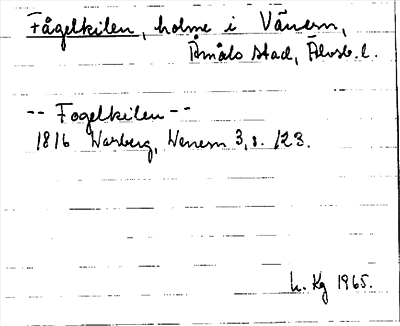 Fågelkilen, holme i Vänern,
Åmåls stad, Älvsb. l.
-- Fogelkilen --
1816 Warberg, Wenern 3, s. 123.
h. Kg 1965.